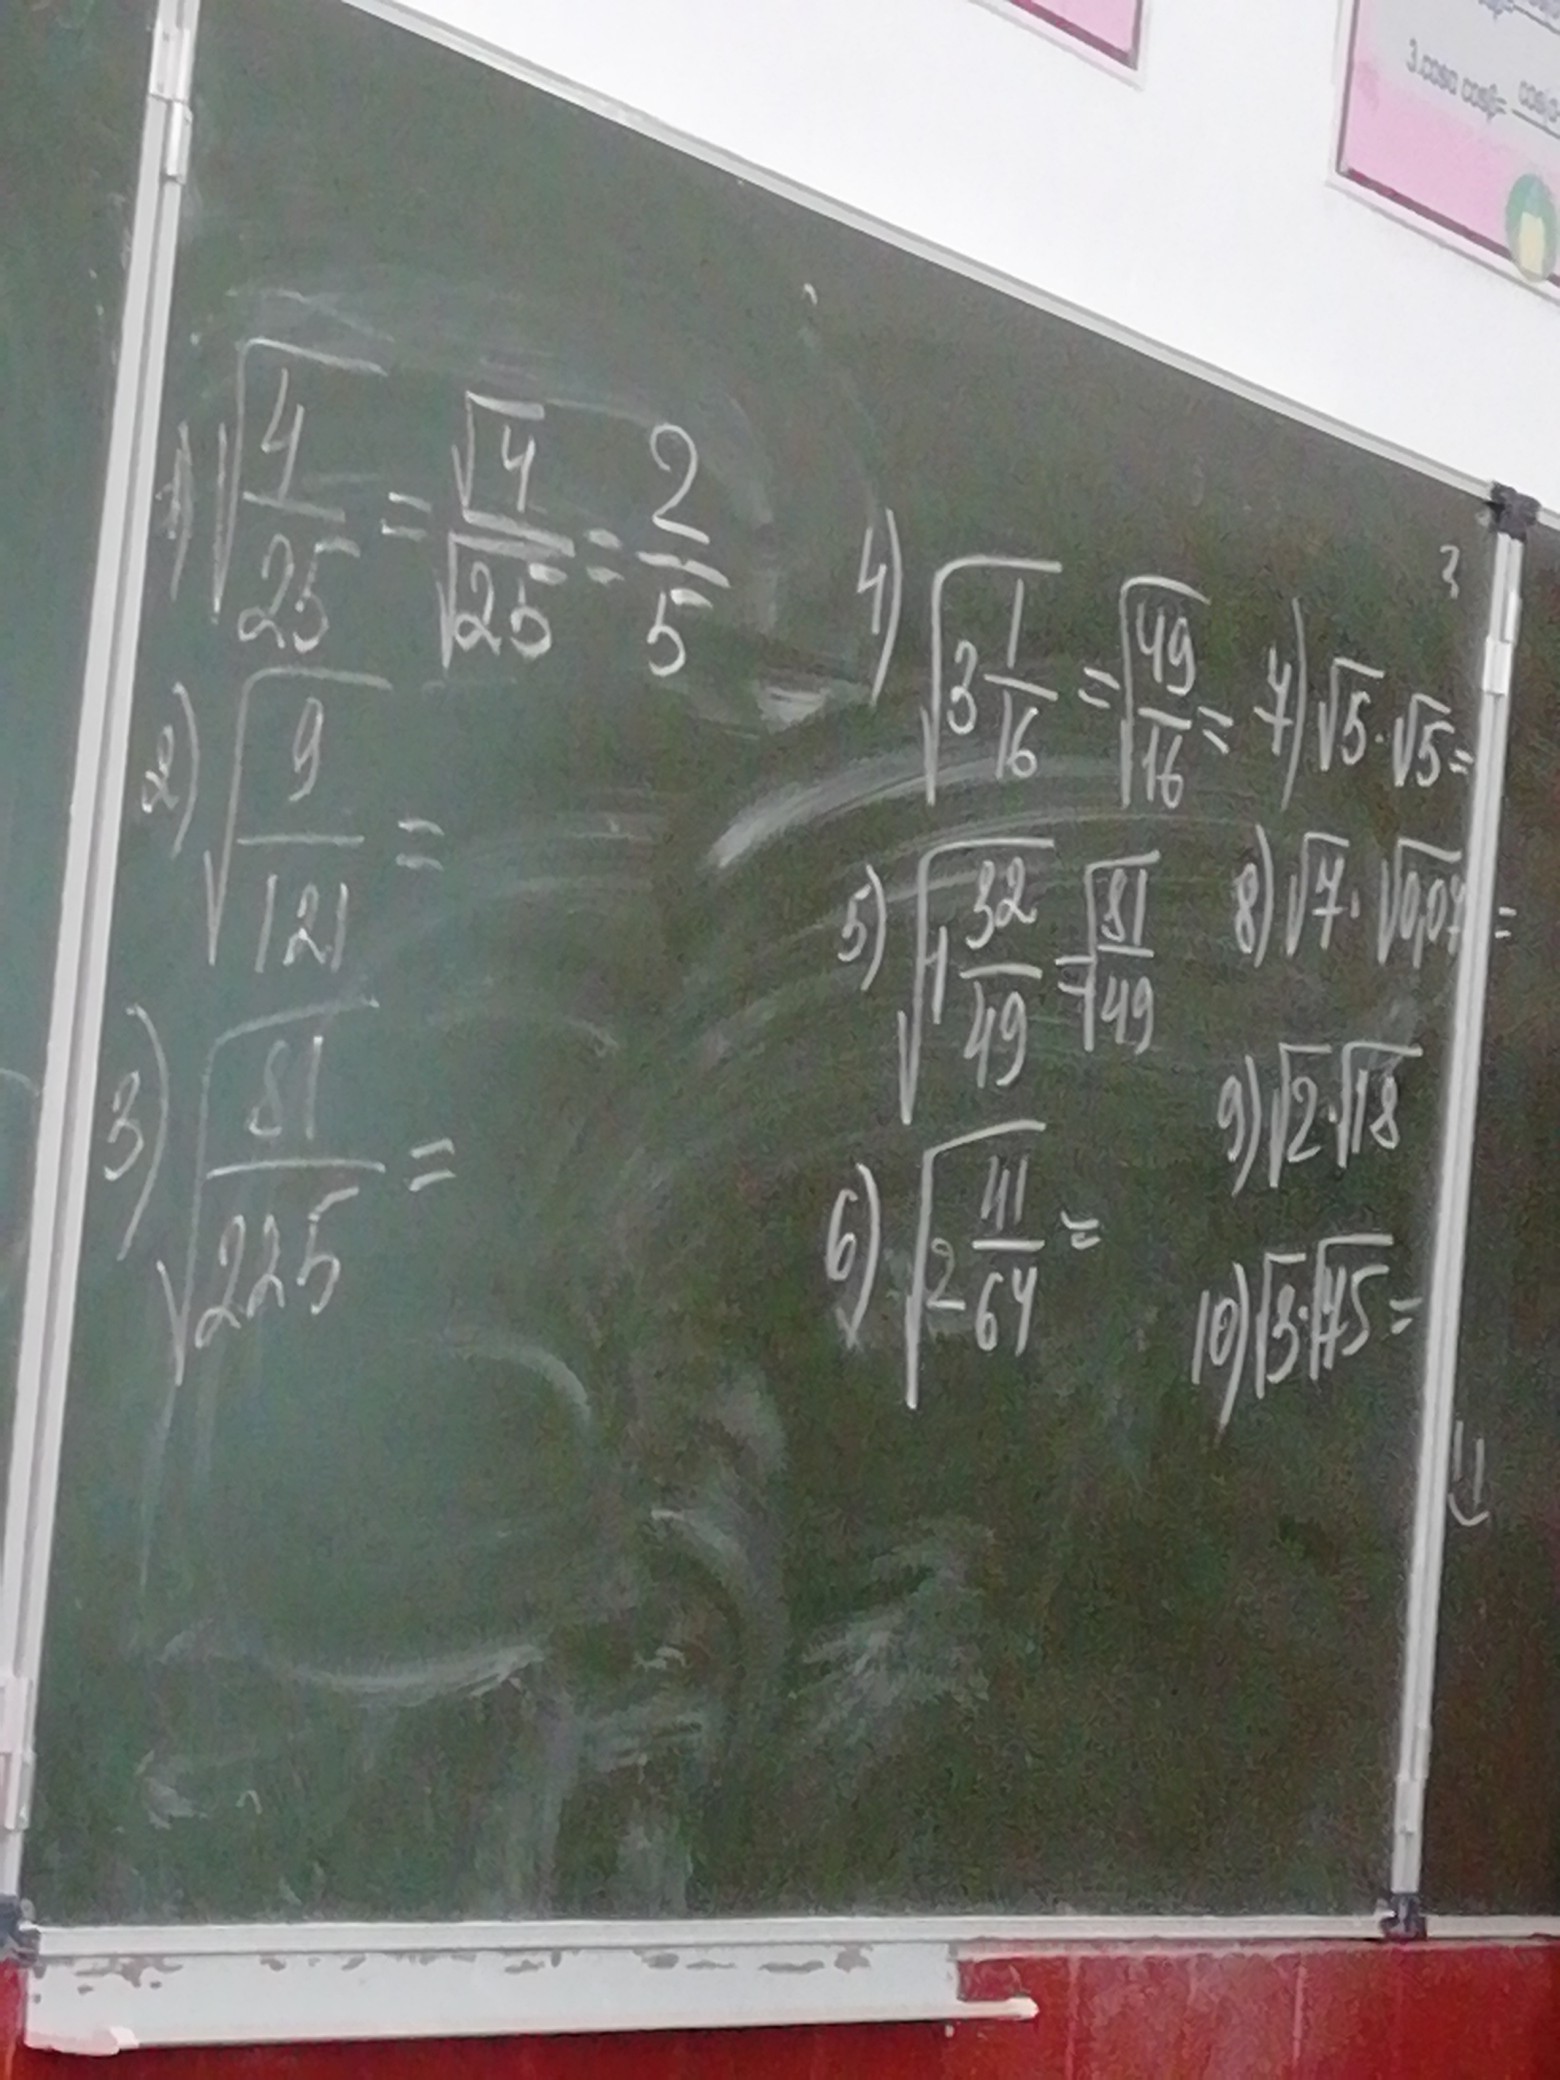 3.cosα cosβ=
1) √(4/25) = √4/√25 = 2/5
2) √(9/121) =
3) √(81/225) =
4) √(3 1/16) = √(49/16) =
5) √(1 32/49) = √(81/49)
6) √(2 41/64) =
7) √5 · √5 =
8) √7 · √0,07 =
9) √2 · √18
10) √3 · √75 =